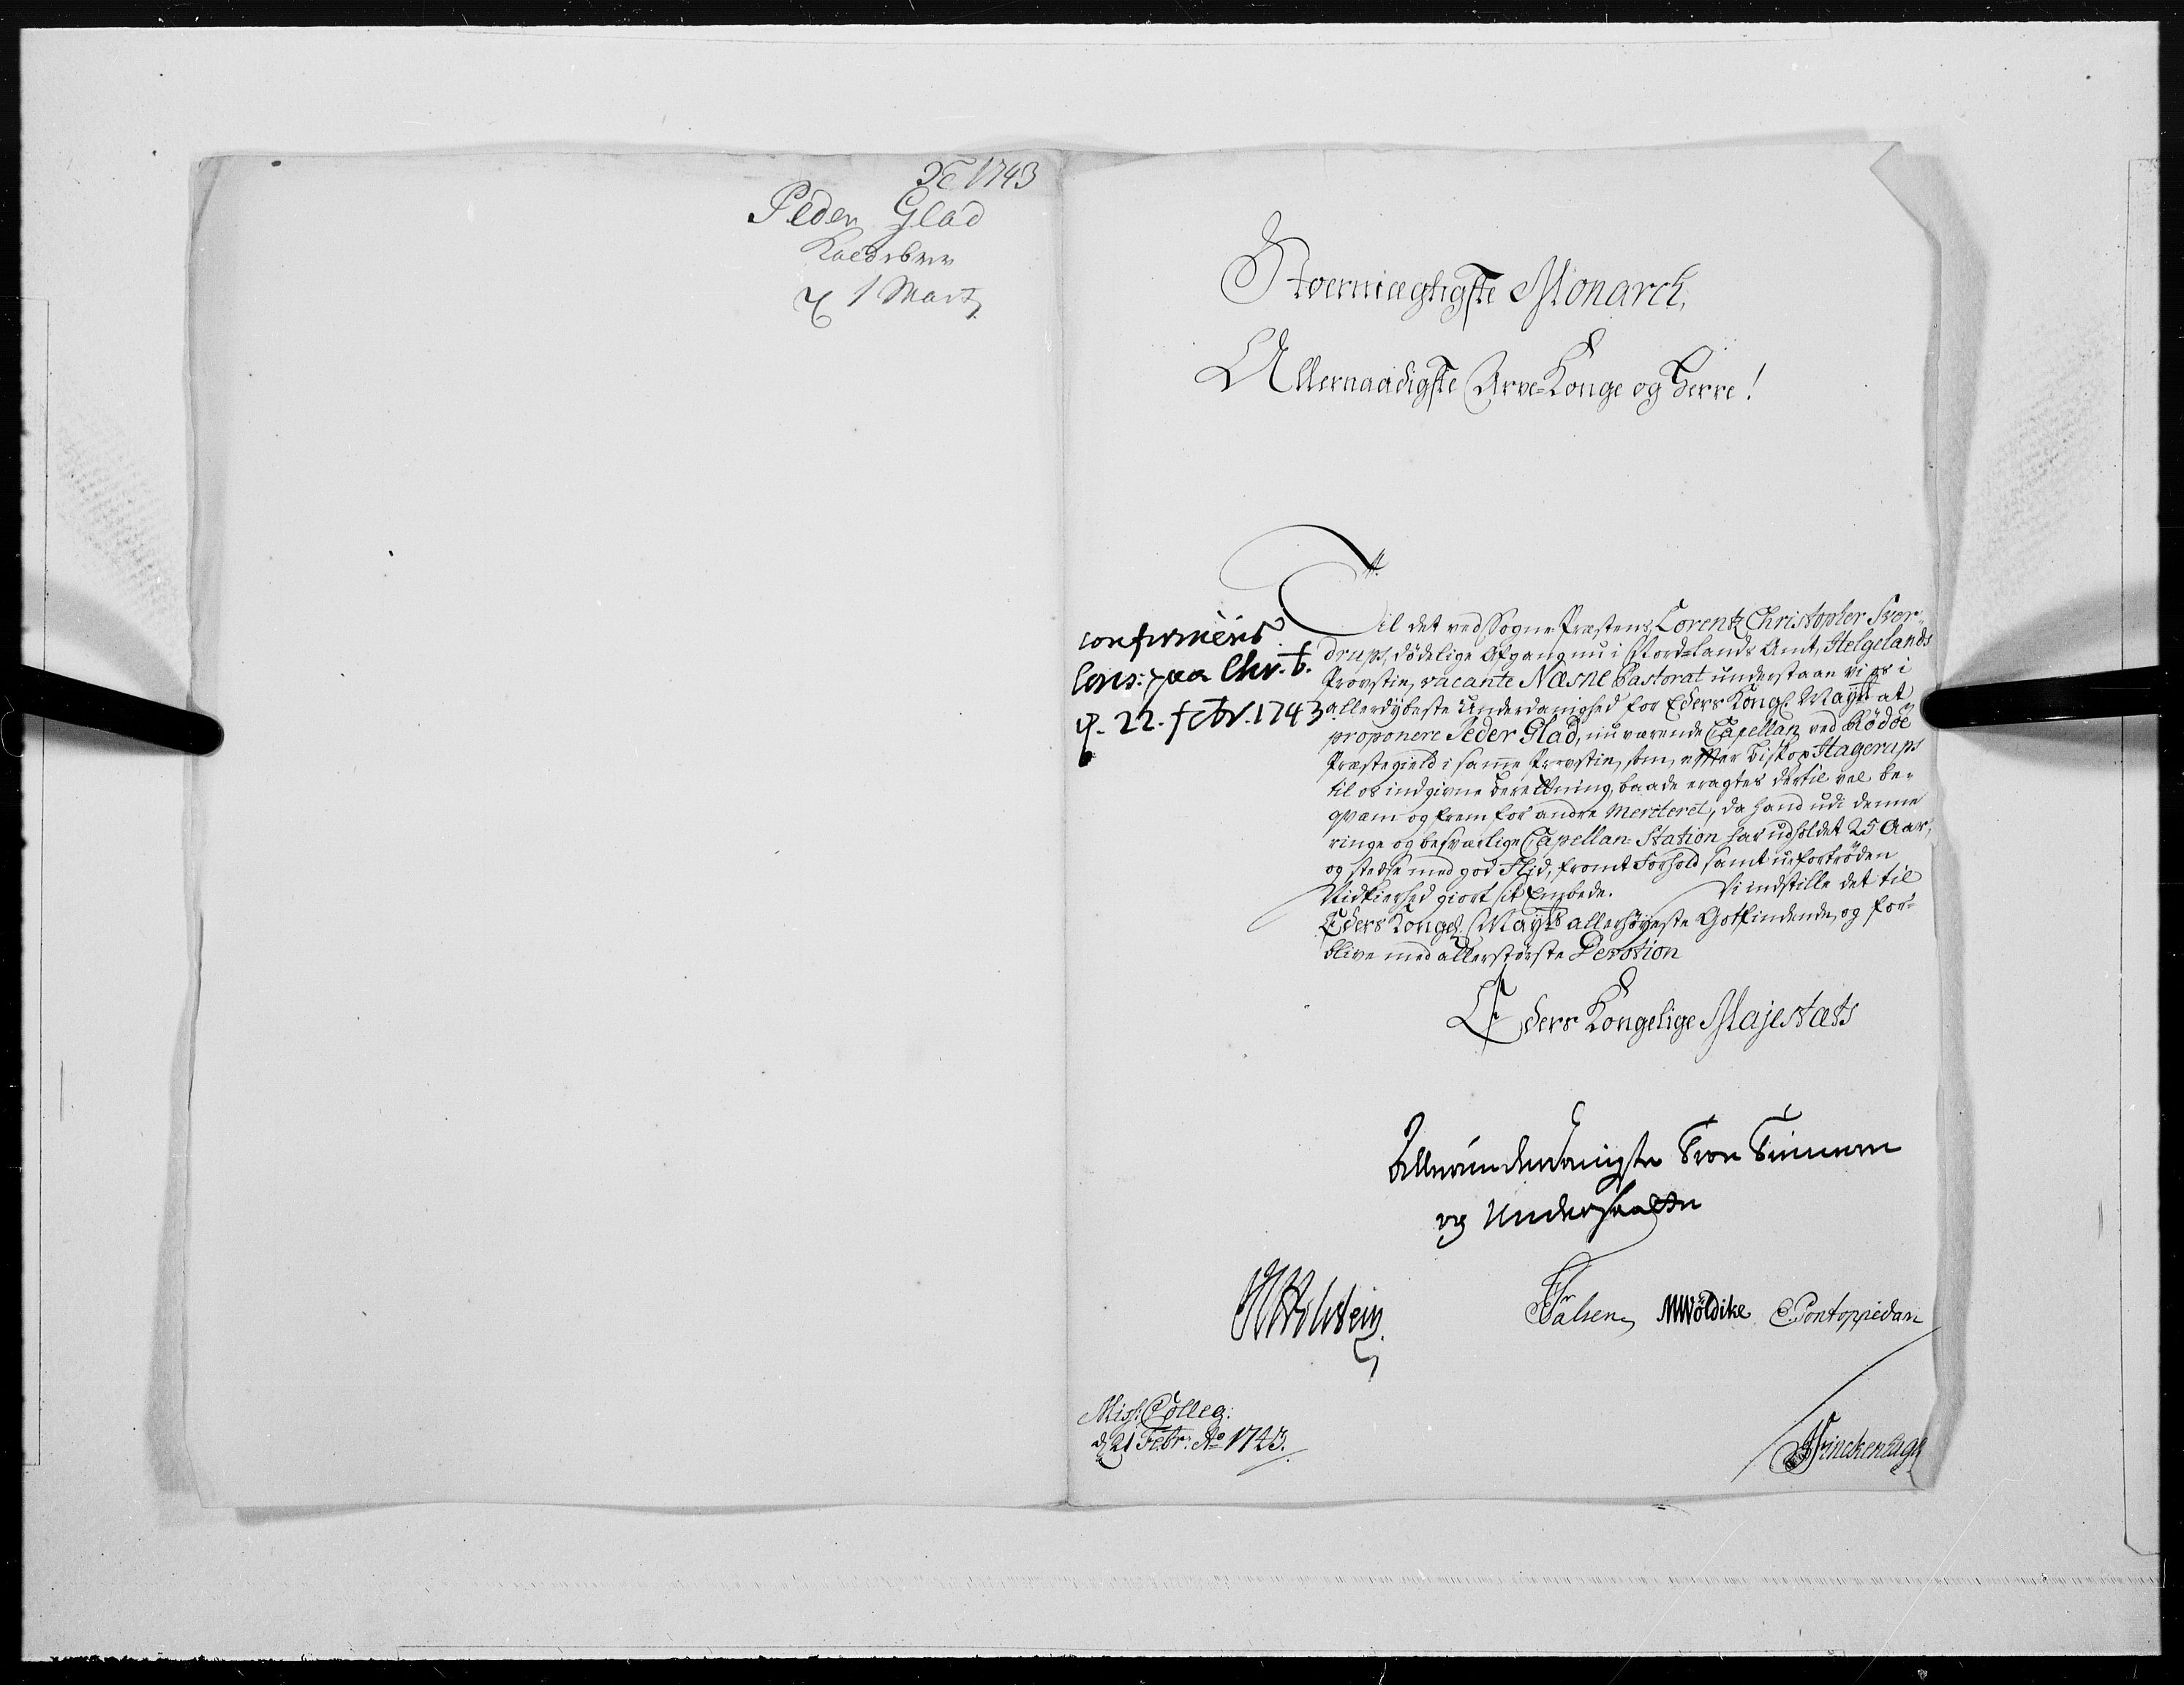 1743
Peder Glad
Kaldsbrev
1 Marty
Stormægtigste Monarch,
Allernaadigste Arve-Konge og Herre!
Til det ved Sogne Præstens Lorentz Christopher Sver-
drups, dödelige Afgang nu i Nord-Lands Amt, Helgelands
Provstie, vacante Næsne Pastorat understaae vi os i
allerdybeste Underdanighed for Eders Kongl. Mayts at
proponere Peder Glad, nu værende Capellan ved Rödöe
Præstegield i samme Provstie, som, efter Biskop Hagerups
til os indgivne Beretning, baade eragtes dertil vel be-
qvem og frem for andre Meriteret, da hand udi denne
ringe og besværlige Capellan-Station har udholdet 25 Aar,
og stedse med god Flid, fromt Forhold samt ufortröden
Nidkierhed giort sit Embede. Vi indstille det til
Eders Kongel. Mayts allerhöyeste Gotfindende, og for-
blive med allerstörste Devotion
confirmeris
Chr. b.
d. 22. febr. 1743
Eders Kongelige Majestæts
Allerunderdanigste Troe Tienere
og Undersaatter
JLHolstein
Falsen MWöldike E. Pontoppidan
Miss: Colleg:
d. 21 Febr: Ao 1743.
Finckenhagen